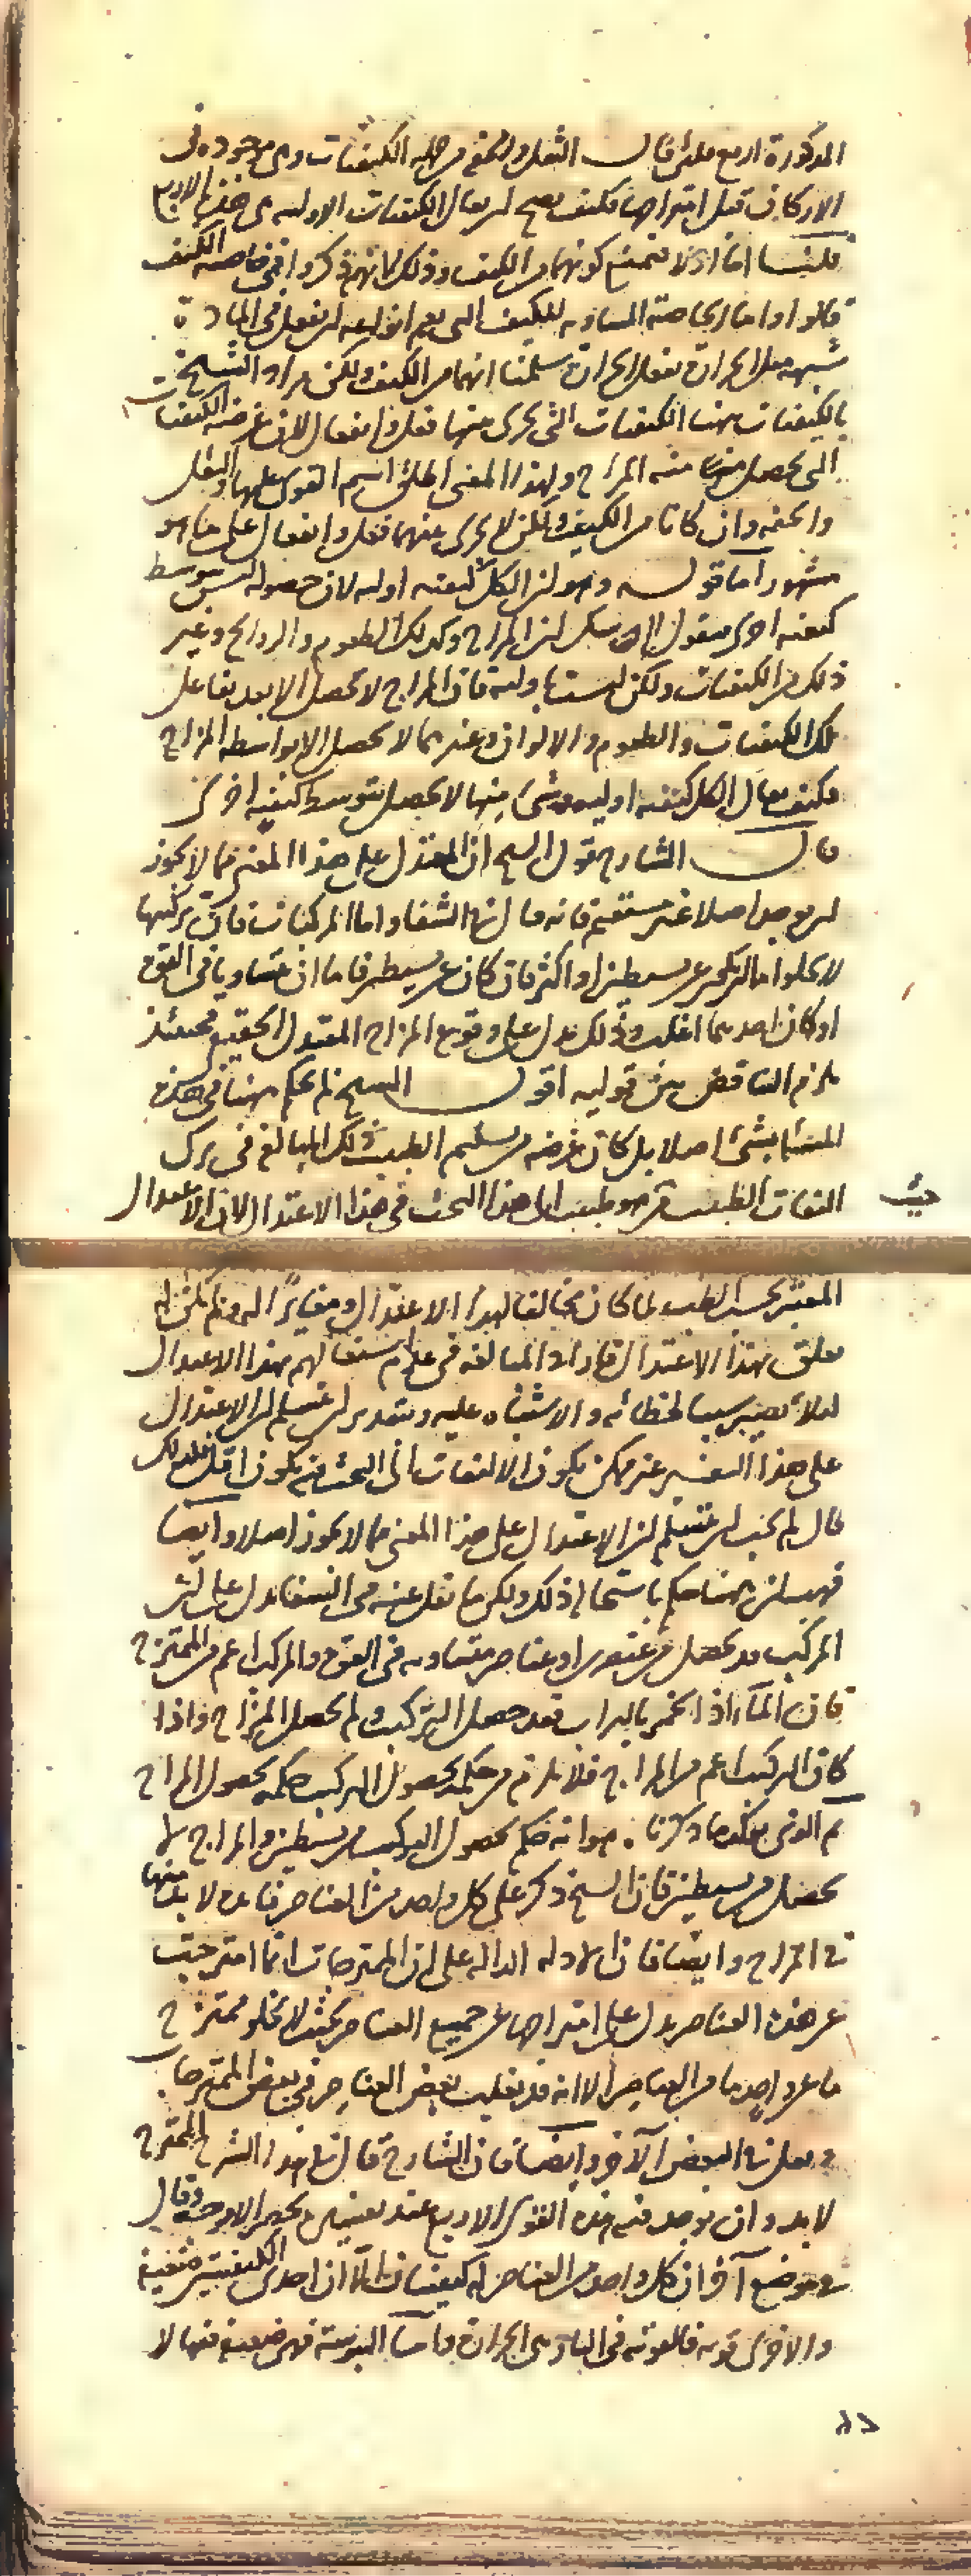 المذكورة اربع فلئن قال الثقل والخفة من جملة الكيفيات وهى موجودة فى
الاركان قبل امتزاجها فكيف يصح ان يقال الكيفيات الاولية هى هذه الاربع
قلنا اما اولا فنمنع كونهما من الكيف وذلك لانهم ذكروا فى خاصة الكيف
قالوا واما الخاصة المساوية للكيف التى يعم انواعه ان يفعل فى المادة
شبهه مثل الحرارة تفعل الحرارة سلمنا انهما من الكيف ولكن مراد الشيخ
بالكيفيات ههنا الكيفيات التى يجرى منها فعل وانفعال لان غرضه الكيفيات
التى يحصل منها منه المزاج ولهذا المعنى اطلق اسم القوى عليها والثقل
والخفة وان كانا من الكيف ولكن لا يجرى عنهما فعل وانفعال على ما هو
مشهور اما قوله وهو ان الكل كيفية اولية لان حصوله ليس بتوسط
كيفية اخرى فنقول لا شك ان المزاج وكذلك الطعوم والروائح وغير
ذلك من الكيفيات ولكن ليست باولية فان المزاج لا تحصل الا بعد تفاعل
تلك الكيفيات والطعوم والالوان وغيرهما لا تحصل الا بواسطة المزاج
فكيف يقال الكل كيفية اولية وشئ منها لا يحصل بتوسط كيفية اخرى
قال الشارح قول الشيخ ان المعتدل على هذا المعنى مما لا يجوز
ان يوجد اصلا غير مستقيم فانه قال فى الشفا واما المركبات فان تركيبها
لا يخلو اما ان يكون عن بسيطين او اكثر فان كان عن بسيطين فاما ان تساويا فى القوة
او كان احدهما اغلب وذلك يدل على وقوع المزاج المعتدل الحقيقى فحينئذ
يلزم التناقض بين قوليه اقول الشيخ لم يحكم ههنا فى هذه
المسئلة بشئ اصلا بل كان غرضه من تسليم الطبيب ذلك المبالغة فى ترك
التفات الطبيب من حيث هو طبيب الى هذا البحث فى هذا الاعتدال لان الاعتدال
المعتبر بحسب الطب لما كان مخالفا لهذا الاعتدال ومغايرا له ولم يكن له
تعلق بهذا الاعتدال فاراد المبالغة فى عدم اشتغالهم بهذا الاعتدال
لئلا يصير سببا لخطائه والاشتباه عليه وبتقدير ان يتسلم ان الاعتدال
على هذا التفسير غير ممكن يكون الالتفات الى البحث فيه يكون اقل فلذلك
قال لم يجب ان يتسلم ان الاعتدال على هذا المعنى مما لا يجوز اصلا وايضا
فهب انه ههنا حكم باستحالة ذلك ولكن ما نقل عنه من الشفا يدل على ان
المركب قد يحصل من عنصرين او عناصر متساوية فى القوة والمركب اعم من الممتزج
فان الماء اذا تخمر بالتراب فقد حصل التركيب ولم يحصل المزاج واذا
كان التركيب اعم من المزاج فلا يلزم من حكمه بحصول التركيب حكمه بحصول المزاج
ثم الذى يؤكد ما ذكرنا هو انه حكم بحصول التركيب من بسيطين والمزاج لا
يحصل من بسيطين فان الشيخ ذكر على كل واحد من العناصر فانه لا بد منها
فى المزاج وايضا فان الادلة الدالة على ان الممتزجات انما امتزجت
عن هذه العناصر يدل على امتزاجها عن جميع العناصر بحيث لا يخلو ممتزج
ما عن واحد ما من العناصر الا انه قد يغلب بعض العناصر فى بعض الممتزجات
و يقل فى البعض الآخر وايضا فان الشارح قال فى هذا الشرح الممتزج
لا بد وان يوجد فيه هذه القوى الاربع عند تفسيره لحصر الاوجه وقال
فى موضع آخر ان كل واحد من العناصر له كيفيتان الا ان احدى الكيفيتين ضعيفة
والاخرى قوية فالقوية فى النار هى الحرارة واما اليبوسة فهى ضعيفة فيها لا
حيث